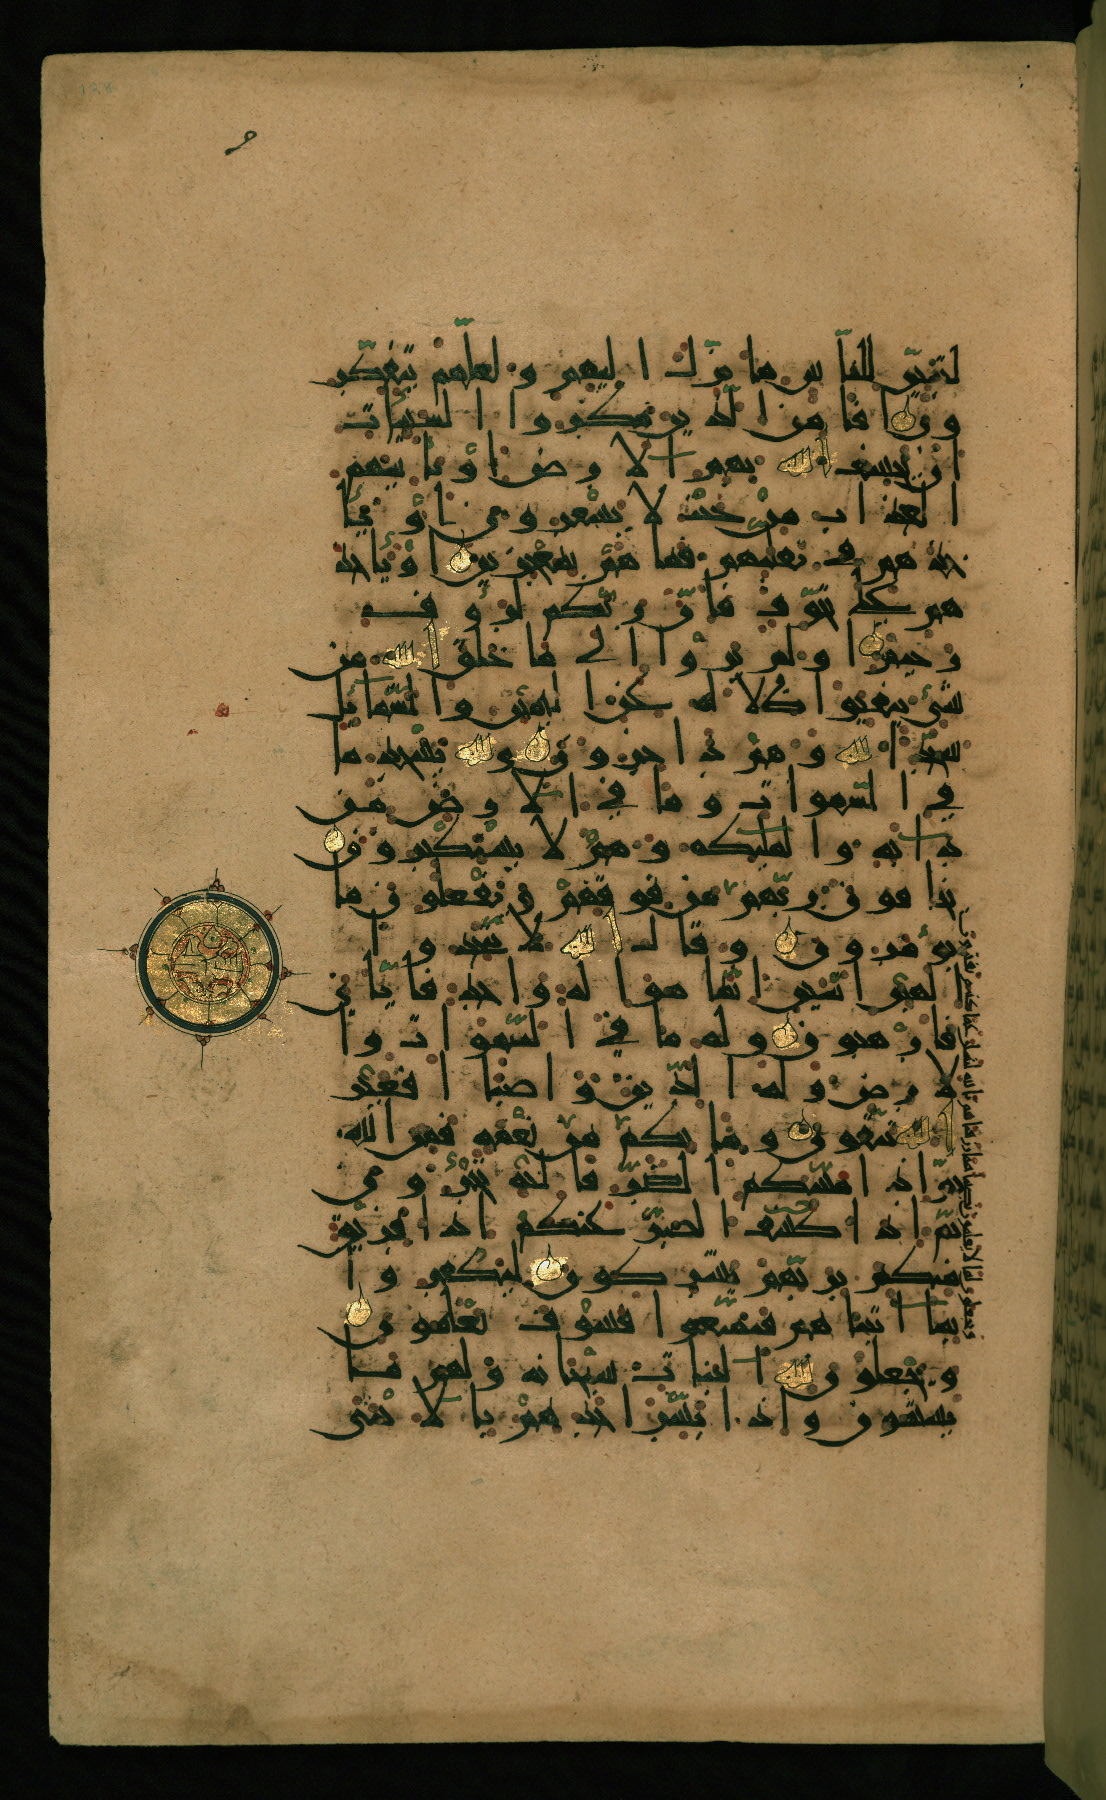 لتبين للناس ما نزل اليهم و لعلهم يتفكر
ون افامن الذين مكروا السيئات
ان يخسف الله بهم الارض او ياتيهم
العذاب من حيث لا يشعرون او يا
خذهم في تقلبهم فما هم بمعجزين او ياخذ
هم على تخوف فان ربكم لرؤف
رحيم اولم يروا الى ما خلق الله من
شئ يتفيوا ظلاله عن اليمين والشمائل
سجدا لله وهم داخرون ولله يسجد ما
في السموات وما في الارض من
دابه والملئكه وهم لا يستكبرون
يخافون ربهم من فوقهم ويفعلون ما
يؤمرون وقال الله لا تتخذوا
الهين اثنين انما هو اله واحد فاياي
فارهبون وله ما في السموات وا
لارض وله الدين واصبا افغير
الله تتقون وما بكم من نعمه فمن الله
ثم اذا مسكم الضر فاليه تجئرون
ثم اذا كشف الضر عنكم اذا فريق
منكم بربهم يشركون ليكفروا
بما اتيناهم فتمتعوا فسوف تعلمون
ويجعلون لله البنات سبحانه ولهم ما
يشتهون واذا بشر احدهم بالانثى
ويجعلون لما لا يعلمون نصيبا مما رزقناهم تالله لتسئلن عما كنتم تفترون